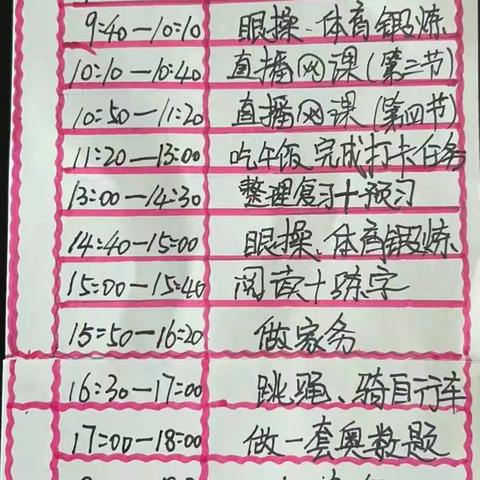 9:40—10:10 眼操、体育锻炼
10:10—10:40 直播网课(第三节)
10:50—11:20 直播网课(第四节)
11:20—13:00 吃午饭完成打卡任务
13:00—14:30 整理复习+预习
14:40—15:00 眼操、体育锻炼
15:00—15:40 阅读+练字
15:50—16:20 做家务
16:30—17:00 跳绳、骑自行车
17:00—18:00 做一套奥数题